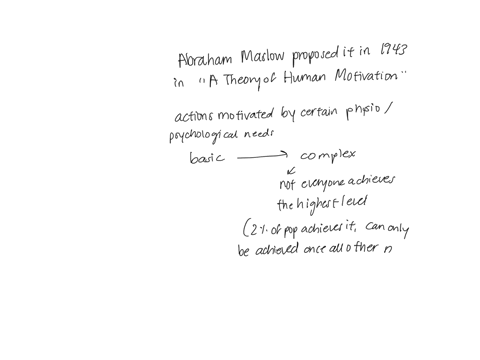 Abraham Maslow proposed it in 1943
in "A Theory of Human Motivation"
actions motivated by certain physio /
psychological needs
basic → complex
not everyone achieves
the highest level
(2% of pop achieves it, can only
be achieved once all other n